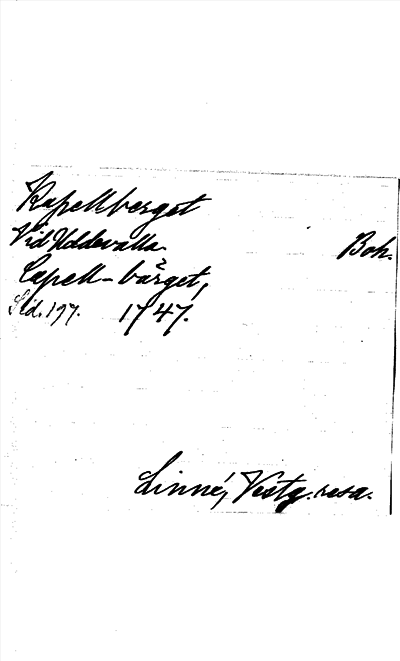 Kapellberget
Vid Uddevalla. Boh.
Capell-bärget,
Sid. 197. 1747.
Linné, Vestg. resa.